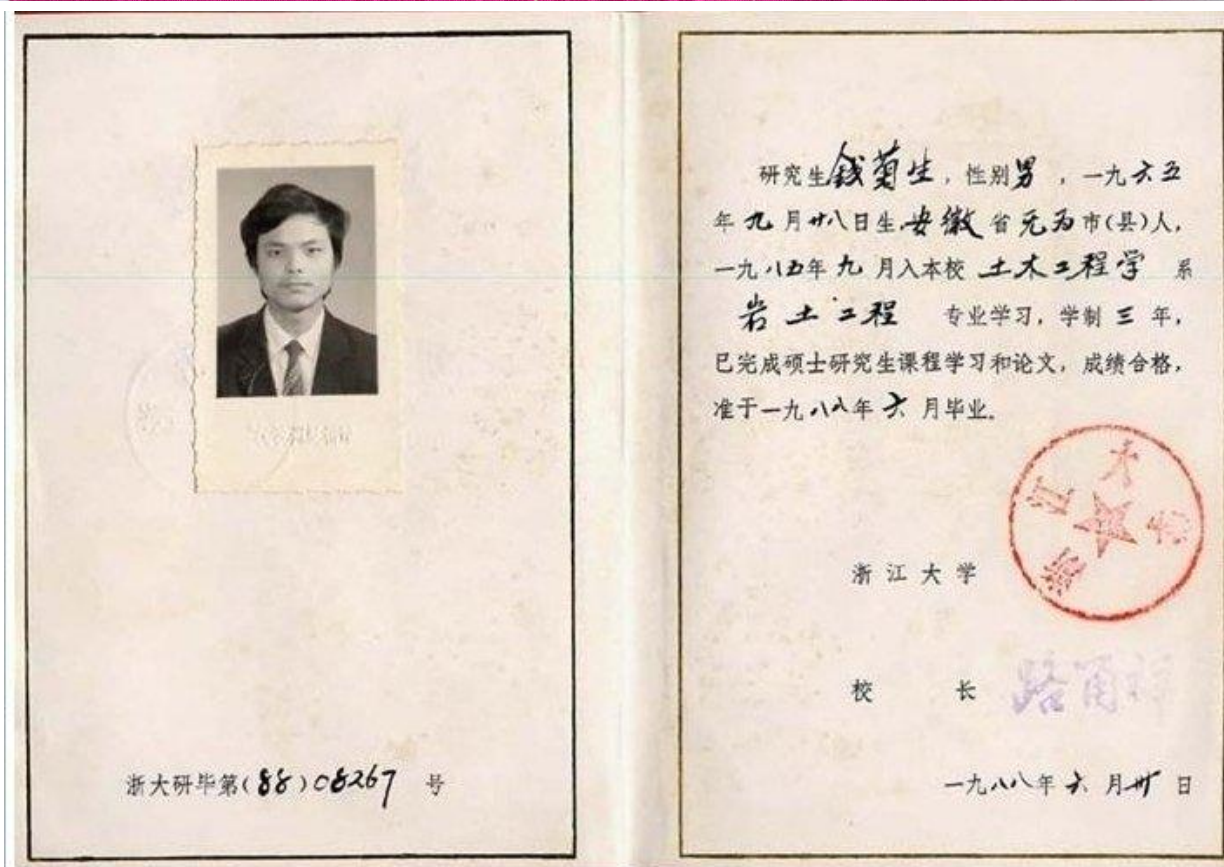 浙大研毕第(88)08267 号
研究生钱菊生，性别男，一九六五
年九月廿八日生，安徽省无为市(县)人，
一九八五年九月入本校 土木工程学 系
岩土工程 专业学习，学制三年，
已完成硕士研究生课程学习和论文，成绩合格，
准于一九八八年六月毕业。
浙江大学
浙江大学
校 长 路甬祥
一九八八年六月卅日